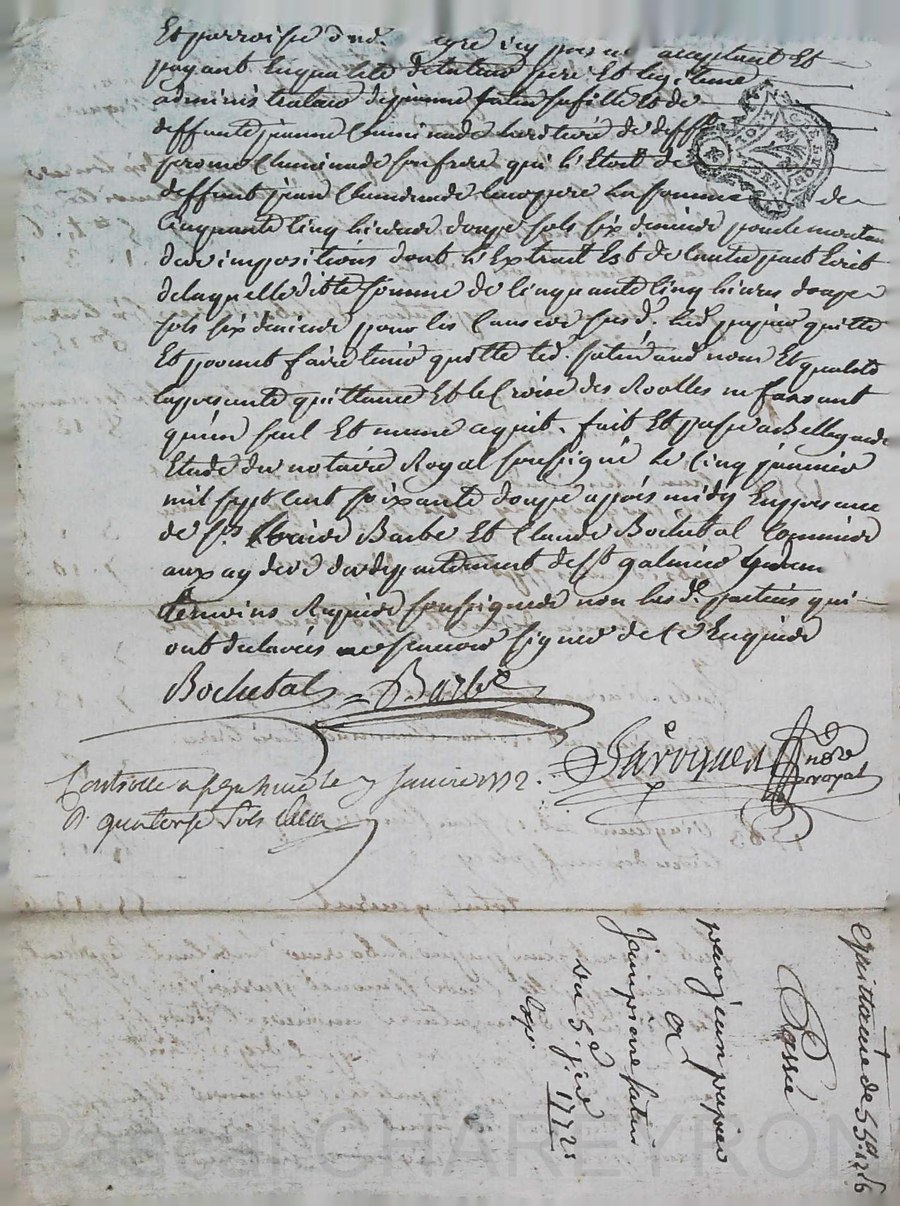 Et parroisse dud. icy present acceptant Et
payant En qualité de tuteur pere Et legitime
administrateur de jeanne fatin sa fille Et de
deffunte jeanne Cheminade heretiere de deff
jerome Cheminade son frere qui l'Etoit de
deffunt jean Cheminade leur pere la somme de
Cinquante Cinq livres douze sols six deniers pour le montan
des impositions dont l'Extrait Est de l'autre part Ecrit
de laquelle ditte somme de Cinquante Cinq livres douze
sols six deniers pour les Causes susd. led. papier quitte
Et promet faire tenir quitte led. fatin aud. nom Et qualité
la presente quittance Et le Croise des Roolles ne faisant
qu'un seul Et meme aquit. fait Et passé a Bellegarde
Etude du notaire Royal soussigné Le Cinq janvier
mil sept cent soixante douze apres midy En presence
de Srs Barbe Et Claude Bochetal Commis
aux aydes du departement de St galmier
temoins Requis soussignés non lesd. parties qui
ont declarés ne sçavoir signer de Ce Enquises
Bochetal = Barbe
Javogues
nore
royal
Controllé a le 7 Janvier 1772.
R. quatorze sols
quittance de 55lt 12s 6
Passée
par jean papier
a
fatin
du 5e jer 1772
Exp.
Pascal CHAREYRON